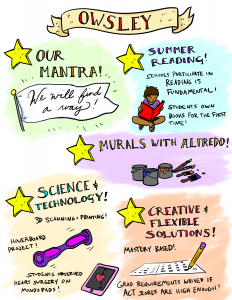 OWSLEY
OUR
MANTRA!
We will find
a way!
SUMMER
READING!
SCHOOLS PARTICIPATE IN
READING IS
FUNDAMENTAL!
STUDENTS OWN
BOOKS FOR THE FIRST
TIME!
MURALS WITH ALTREDD!
SCIENCE &
TECHNOLOGY!
3D SCANNING & PRINTING!
HOVERBOARD
PROJECT!
STUDENTS OBSERVED
HEART SURGERY ON
MONDOPADS!
CREATIVE &
FLEXIBLE
SOLUTIONS!
MASTERY BASED!
GRAD REQUIREMENTS WAIVED IF
ACT SCORES ARE HIGH ENOUGH!